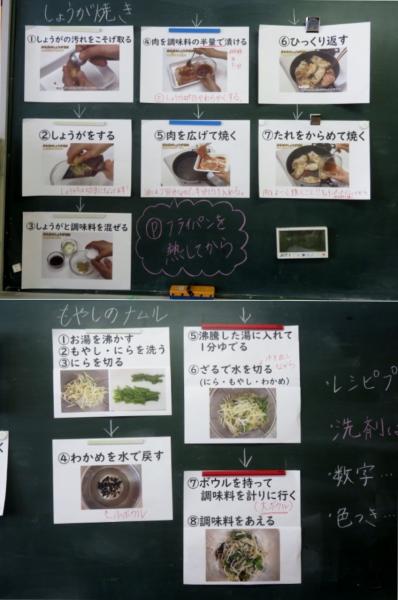 しょうが焼き
①しょうがの汚れをこそげ取る
②しょうがをする
③しょうがと調味料を混ぜる
④肉を調味料の半量で漬ける
⑤肉を広げて焼く
Ⓟフライパンを
熱してから
⑥ひっくり返す
⑦たれをからめて焼く
もやしのナムル
①お湯を沸かす
②もやし・にらを洗う
③にらを切る
④わかめを水で戻す
⑤沸騰した湯に入れて
1分ゆでる
⑥ざるで水を切る
(にら・もやし・わかめ)
⑦ボウルを持って
調味料を計りに行く
(大ボウル)
⑧調味料をあえる
・レシピプ
・洗剤は
・数字…
・色つき…